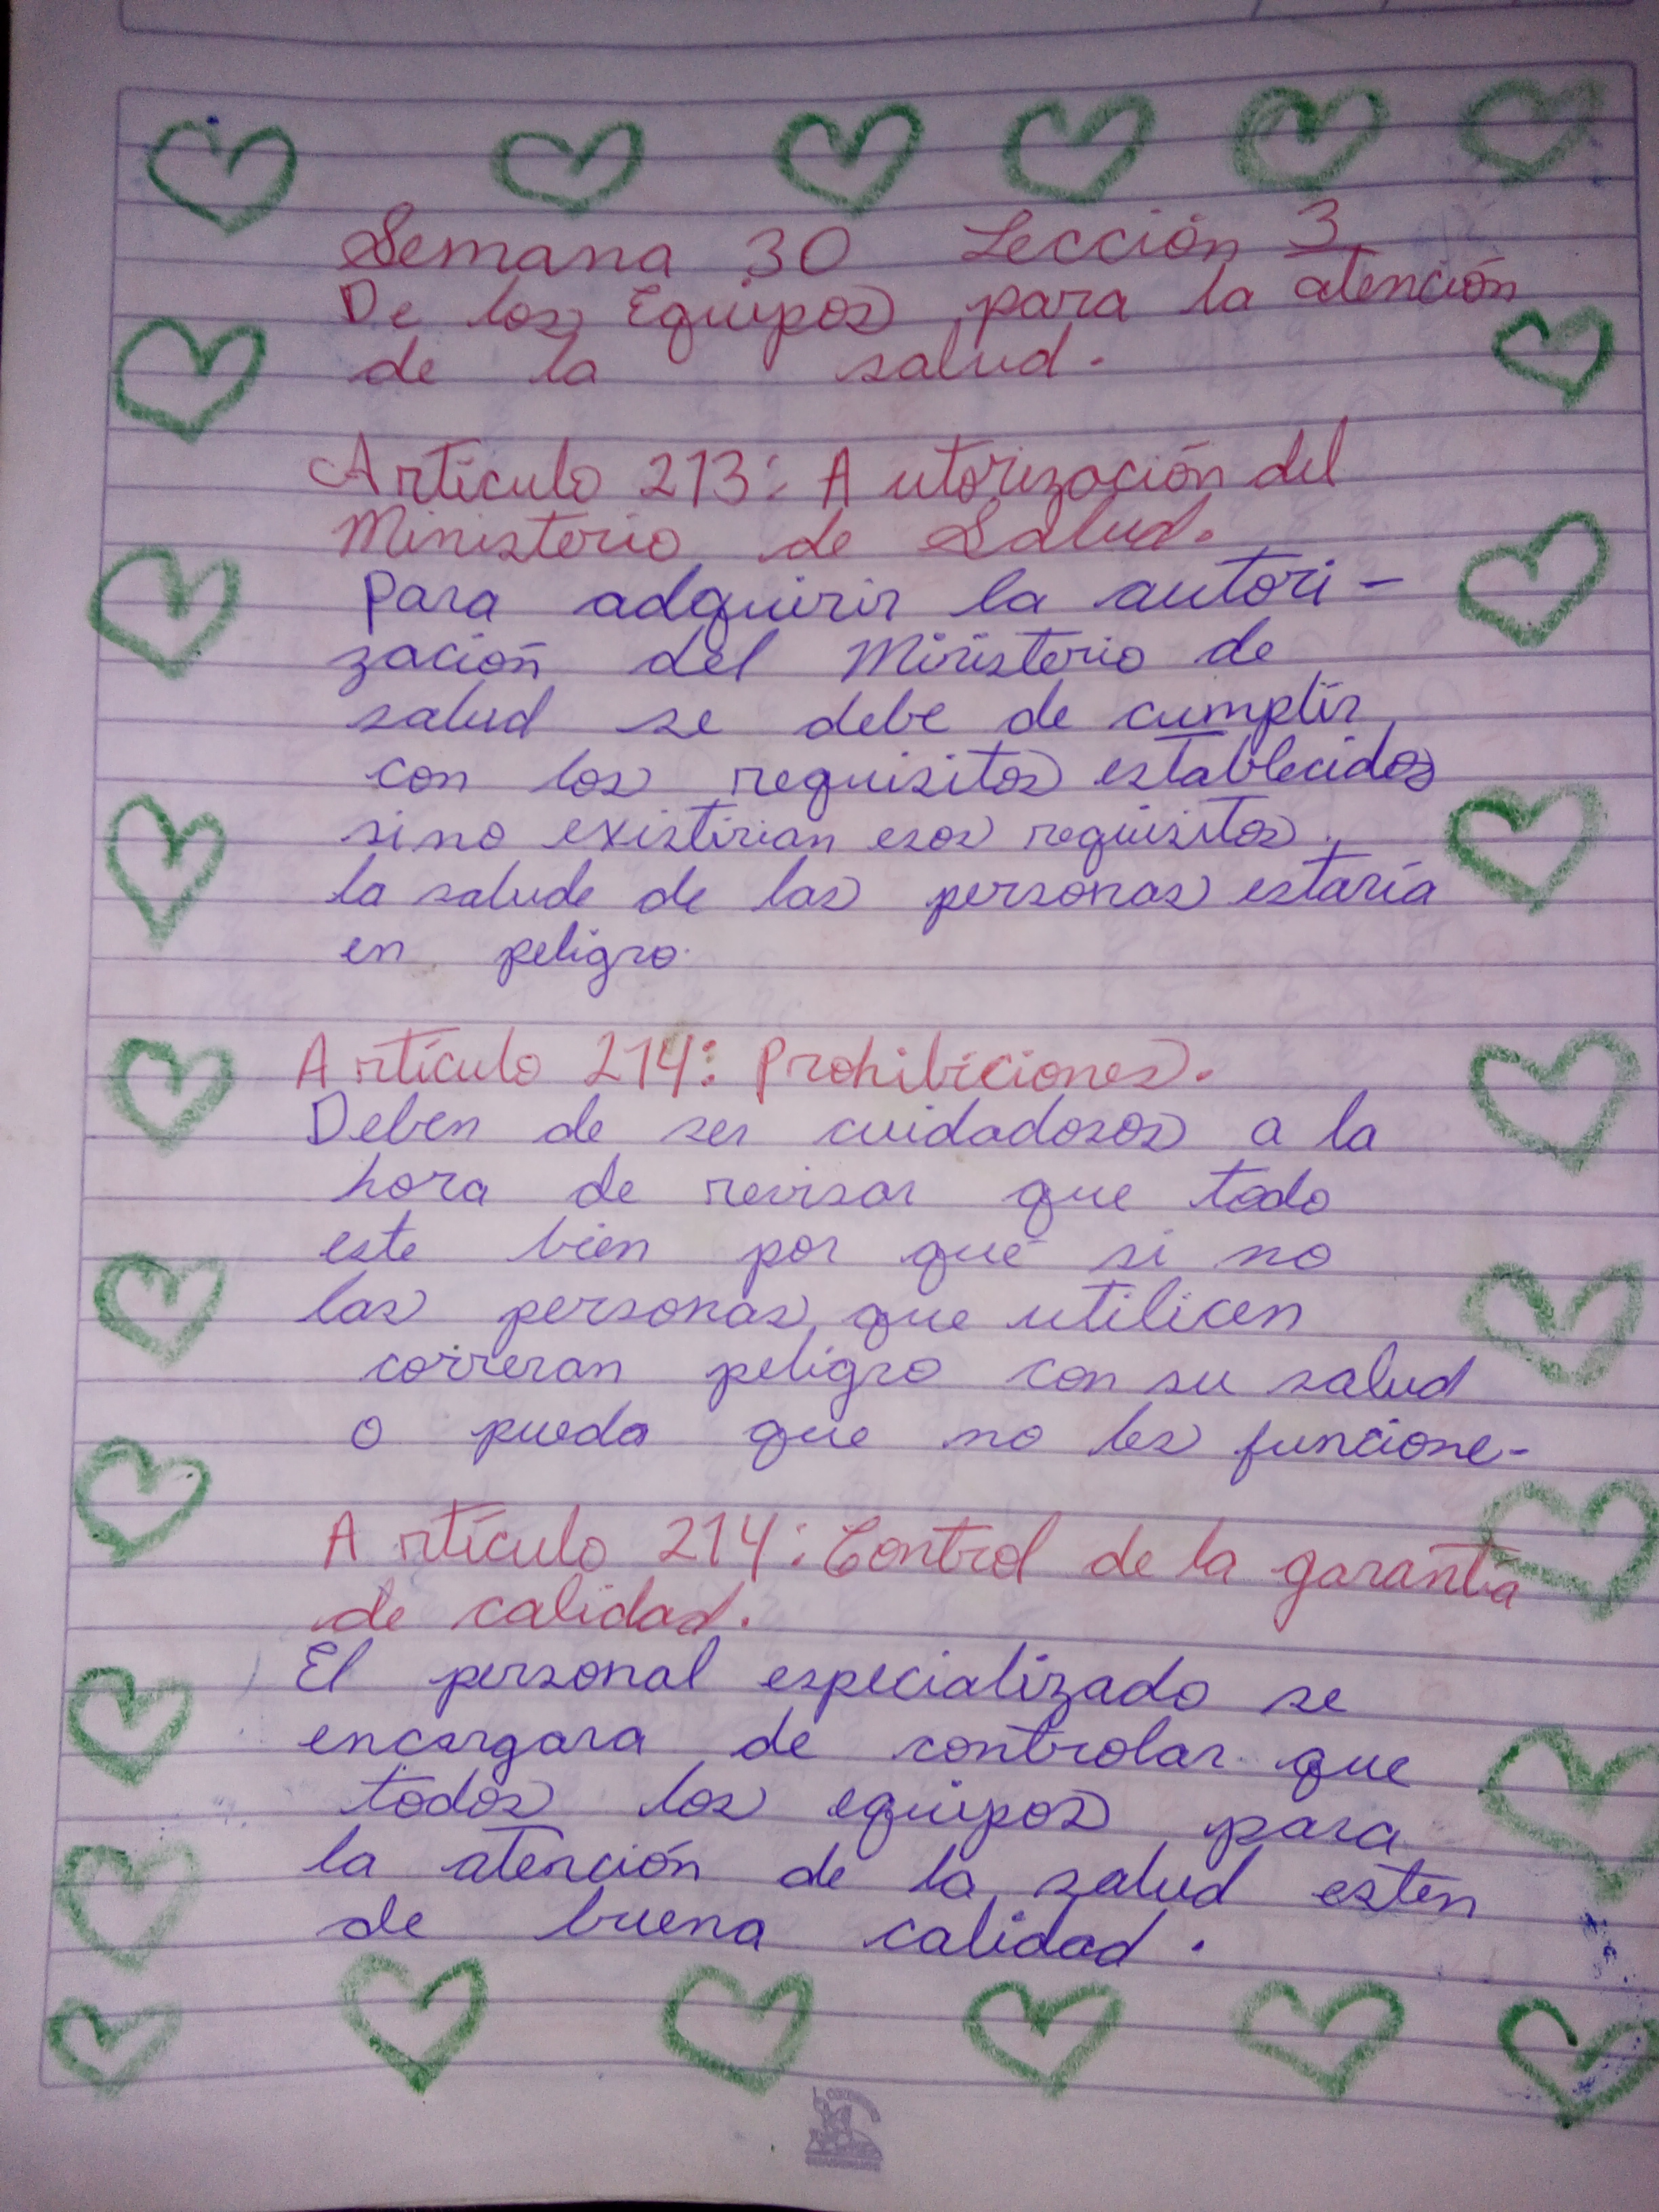 Semana 30 Lección 3
De los Equipos para la atención
de la salud.
Artículo 213: Autorización del
Ministerio de Salud.
Para adquirir la autori-
zación del Ministerio de
salud se debe de cumplir
con los requisitos establecidos
si no existirian esos requisitos
la salude de las personas estaría
en peligro.
Artículo 214: Prohibiciones.
Deben de ser cuidadosos a la
hora de revisar que todo
este bien por que si no
las personas que utilicen
correran peligro con su salud
o pueda que no les funcione-
Artículo 214: Control de la garantía
de calidad.
El personal especializado se
encargara de controlar que
todos los equipos para
la atención de la salud esten
de buena calidad.